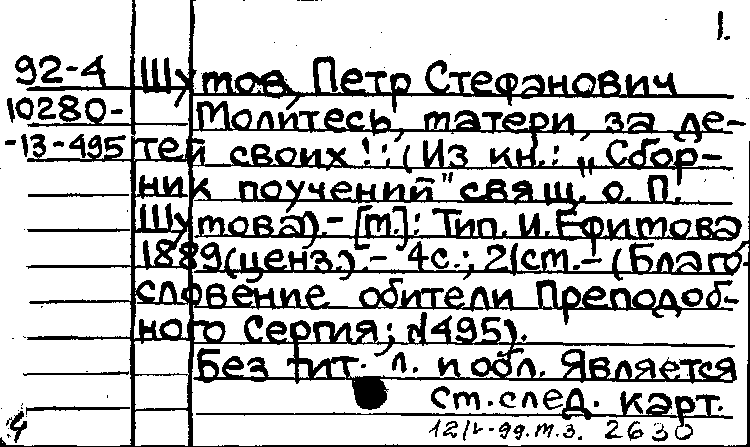 1.
92-4 Шутов, Петр Стефанович
10280- Молитесь, матери, за де-
-13-495 тей своих!: (Из кн.: „Сбор-
ник поучений" свящ. о. П.
Шутова).- [М.]: Тип. И. Ефимова
1889(ценз.).- 4с.; 21см.- (Благо-
словение обители Преподоб-
ного Сергия; №495).
Без тит. л. и обл. Является
см. след. карт.
2630